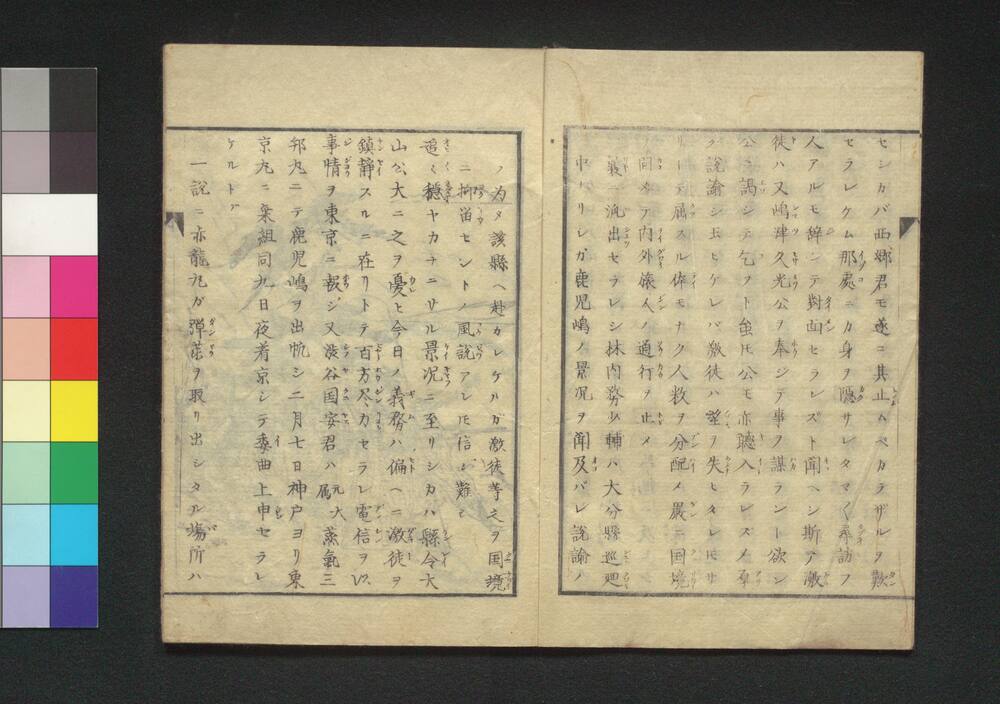 センカバ西郷君モ遂ニ其止ムベカラザルヲ歎
セラレケム那處ニカ身ヲ隠サレタマ〱尋訪フ
人アルモ辞シテ對面セラレズト聞ヘシ斯テ激
徒ハ又嶋津久光公ヲ奉ジテ事ヲ謀ラント欲シ
公ニ謁シテ乞フト虽𪜈公モ亦聴入ラレズメ厚
ク説諭シ玉ヒケレバ激徒ハ望ヲ失ヒタレ𪜈サ
リトテ屈スル体モナク人数ヲ分配メ嚴ニ国境
ヲ固メテ内外旅人ノ通行ヲ止メ
裝ニ派出セラレシ林内務少輔ハ大分縣巡廻
中ナリシガ鹿児嶋ノ景况ヲ聞及バレ説諭ノ
ノ为タ該縣ヘ赴カレケルガ激徒等之ヲ国境
ニ抑留セシトノ風説アレ𪜈信ジ難シ
追〻穏ヤカナラザル景况ニ至リシカハ縣令大
山公大ニ之ヲ憂ヒ今日ノ義務ハ偏ヘニ激徒ヲ
鎮静スルニ在リトテ百方尽力セラレ電信ヲ以
事情ヲ東京ニ報ジ又渋谷国安君ハ 元大属 蒸氣三
邦丸ニテ鹿児嶋ヲ出帆シ二月七日神戸ヨリ東
京丸ニ乗組同九日夜着京シテ委曲上申セラレ
ケルトゾ
一説ニ赤龍丸ガ弾薬ヲ取リ出シタル場所ハ